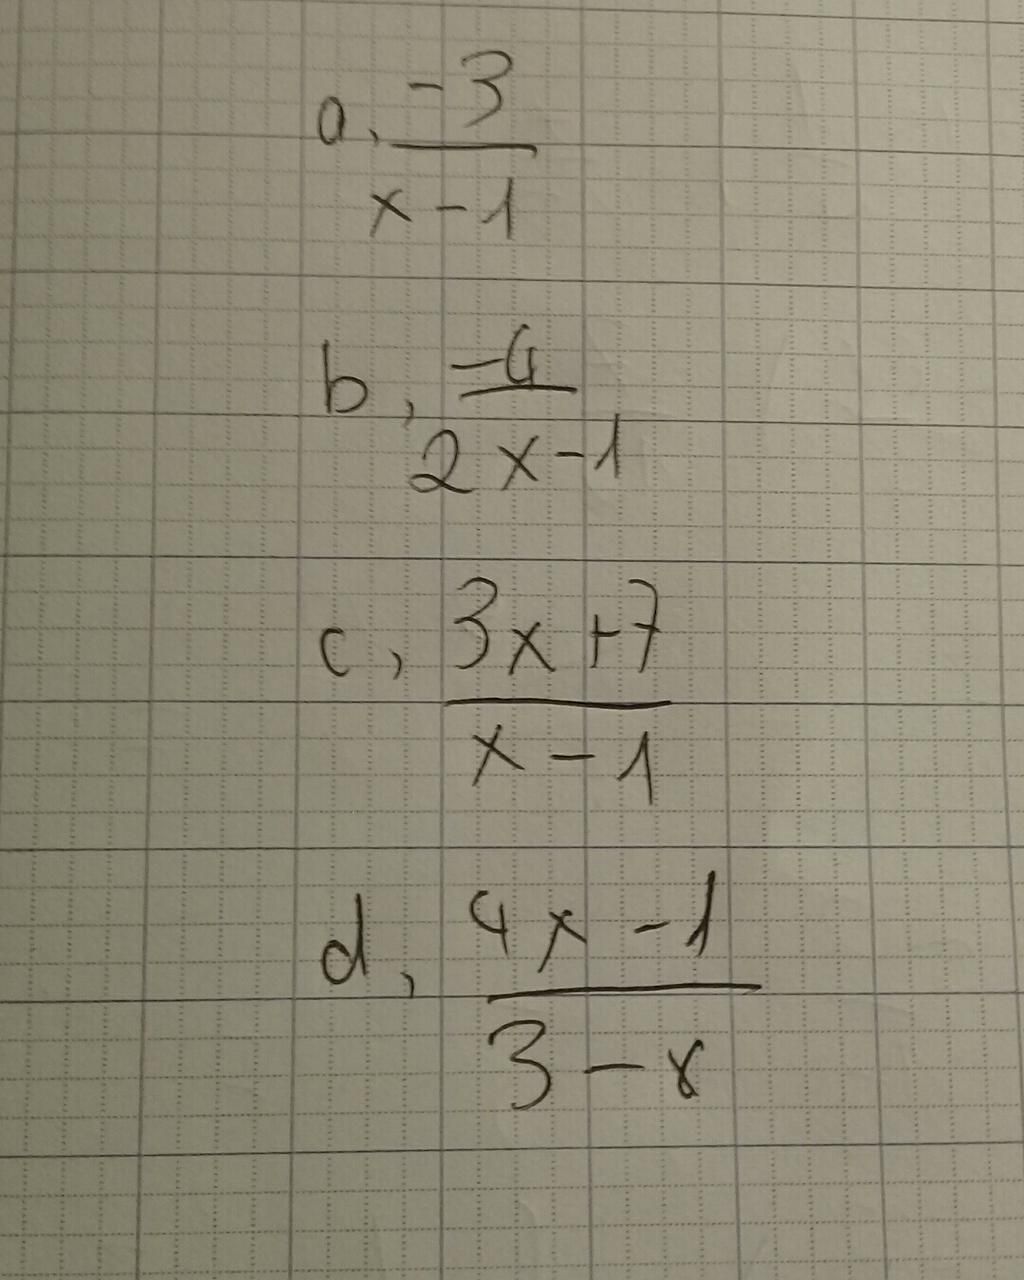 a, -3
x-1
b, -4
2x-1
c, 3x+7
x-1
d, 4x-1
3-x